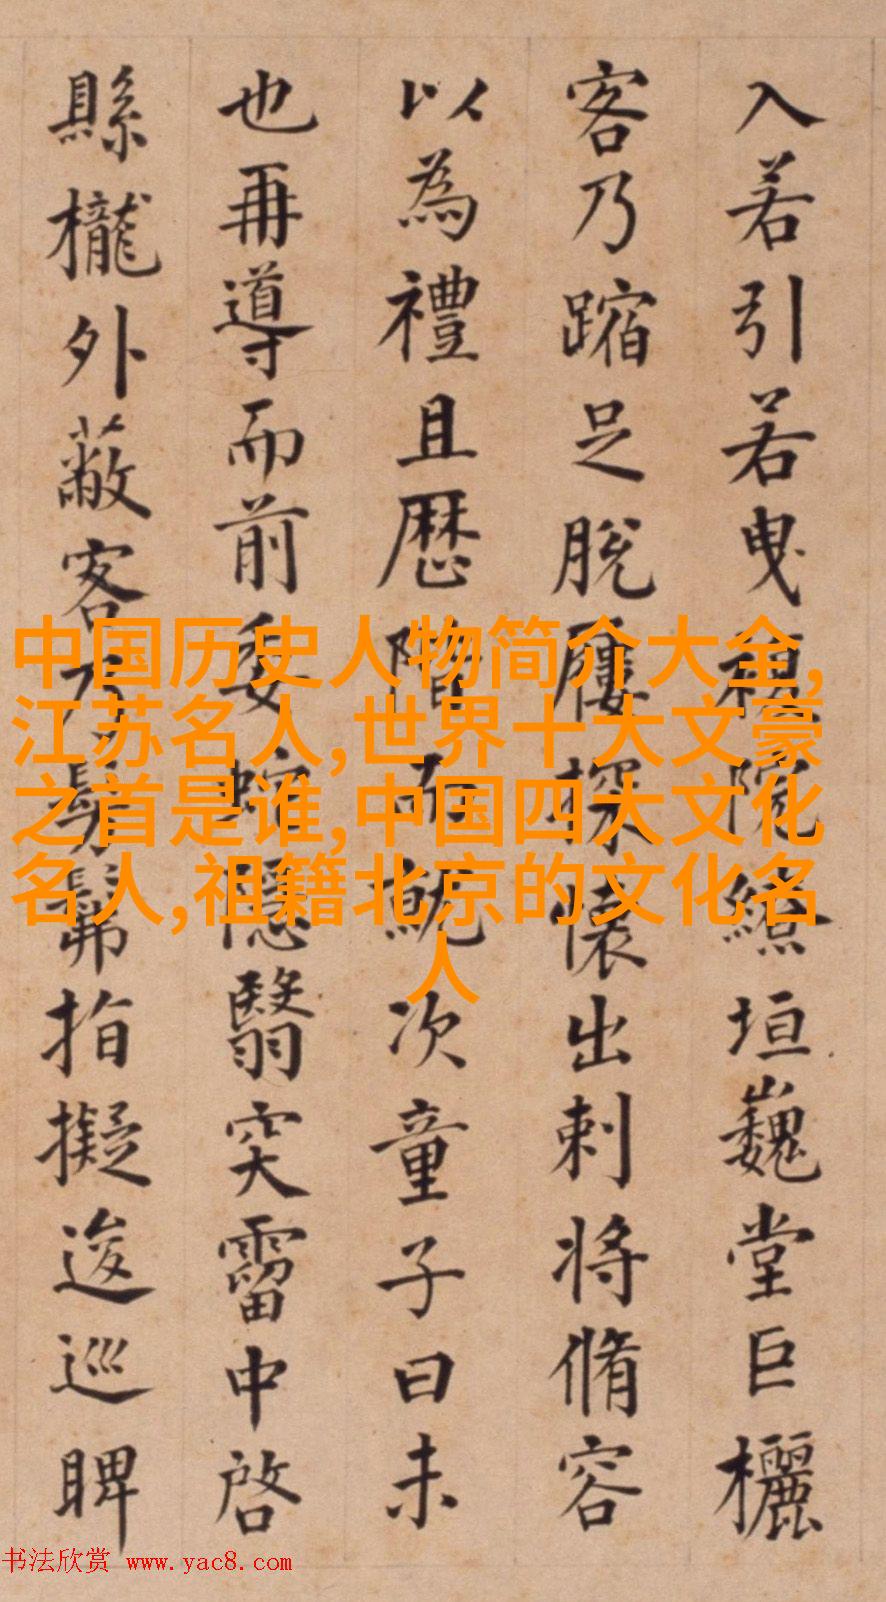 入若引若曳複院繚垣巍堂巨欐
客乃蹜足脫屨探懷出刺將脩容
以為禮且歷階而就次童子曰未
也再導而前委蛇隱翳穾霤中啓
縣櫳外蔽客乃髣髴指擬逡巡睥
中国历史人物简介大全,
江苏名人,世界十大文豪
之首是谁,中国四大文化
名人,祖籍北京的文化名
人
书法欣赏 www.yac8.com